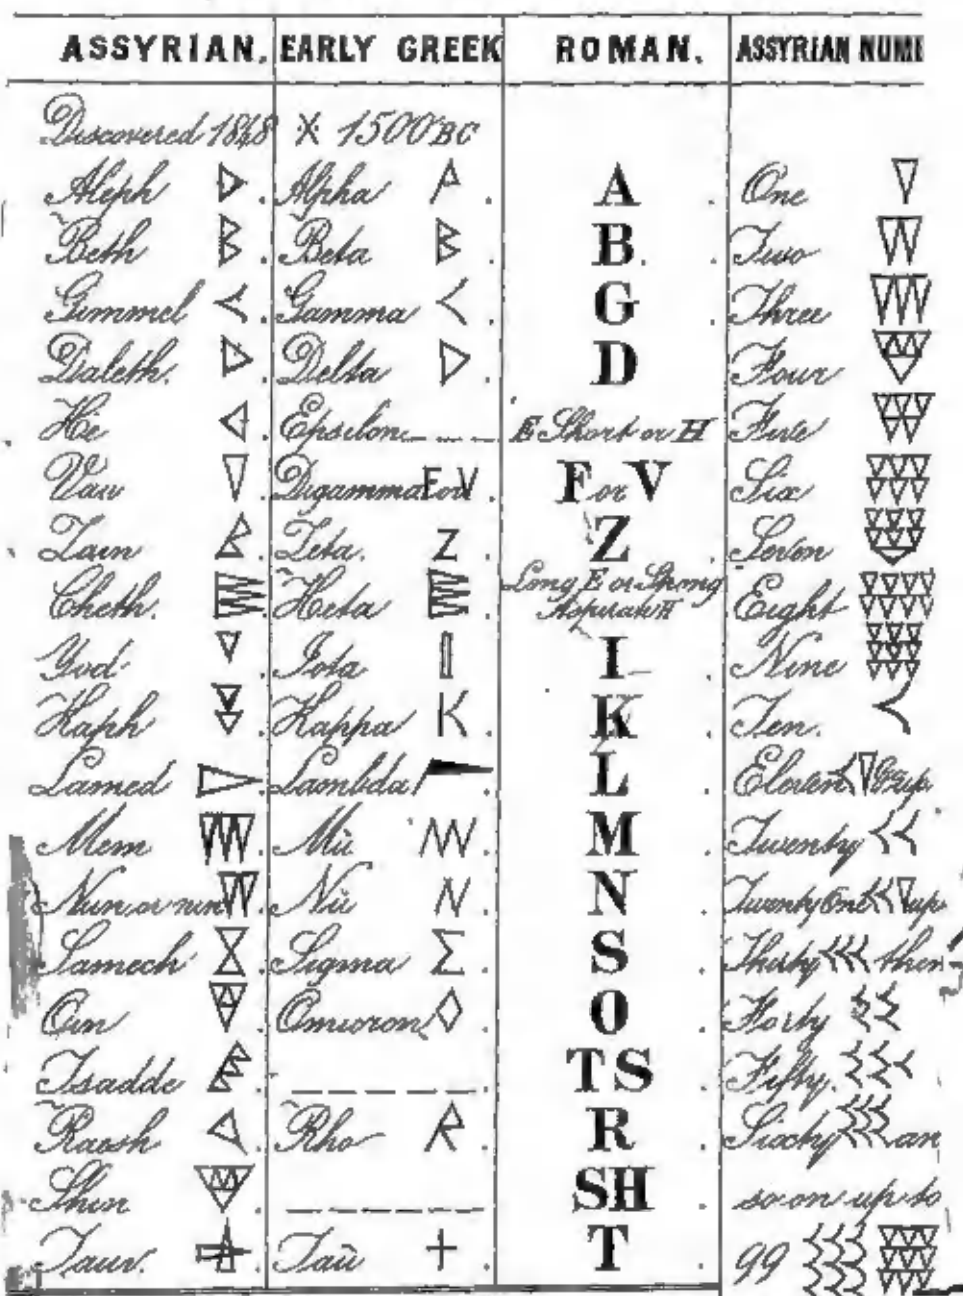 ASSYRIAN. EARLY GREEK ROMAN. ASSYRIAN NUME
Discovered 1848 X 1500 BC
Aleph Alpha A One
Beth Beta B. Two
Gimmel Gamma G Three
Daleth. Delta D Four
He Epsilon E Short or H Five
Vau Digamma or F V F or V Six
Zain Zeta. Z Z Seven
Cheth. Heta Long E or Strong Eight
Aspirate H
Yod Iota I Nine
Kaph Kappa K K Ten.
Lamed Lambda L Eleven
Mem Mu M Twenty
Nun or nun Nu N N Twenty One up
Samech Sigma Σ S Thirty then
Oin Omicron O Forty
Tsadde TS Fifty.
Raosh Rho R R Sixty an
Shin SH so on up to
Tauv. Tau T 99